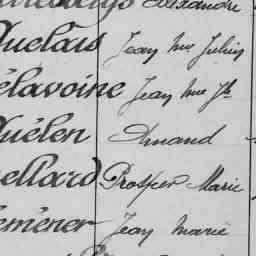 Alexandre
Quélais Jean Mie Julien
élavoine Jean Mie Jh
Quélen Amand
ellard Prosper Marie
éméner Jean Marie